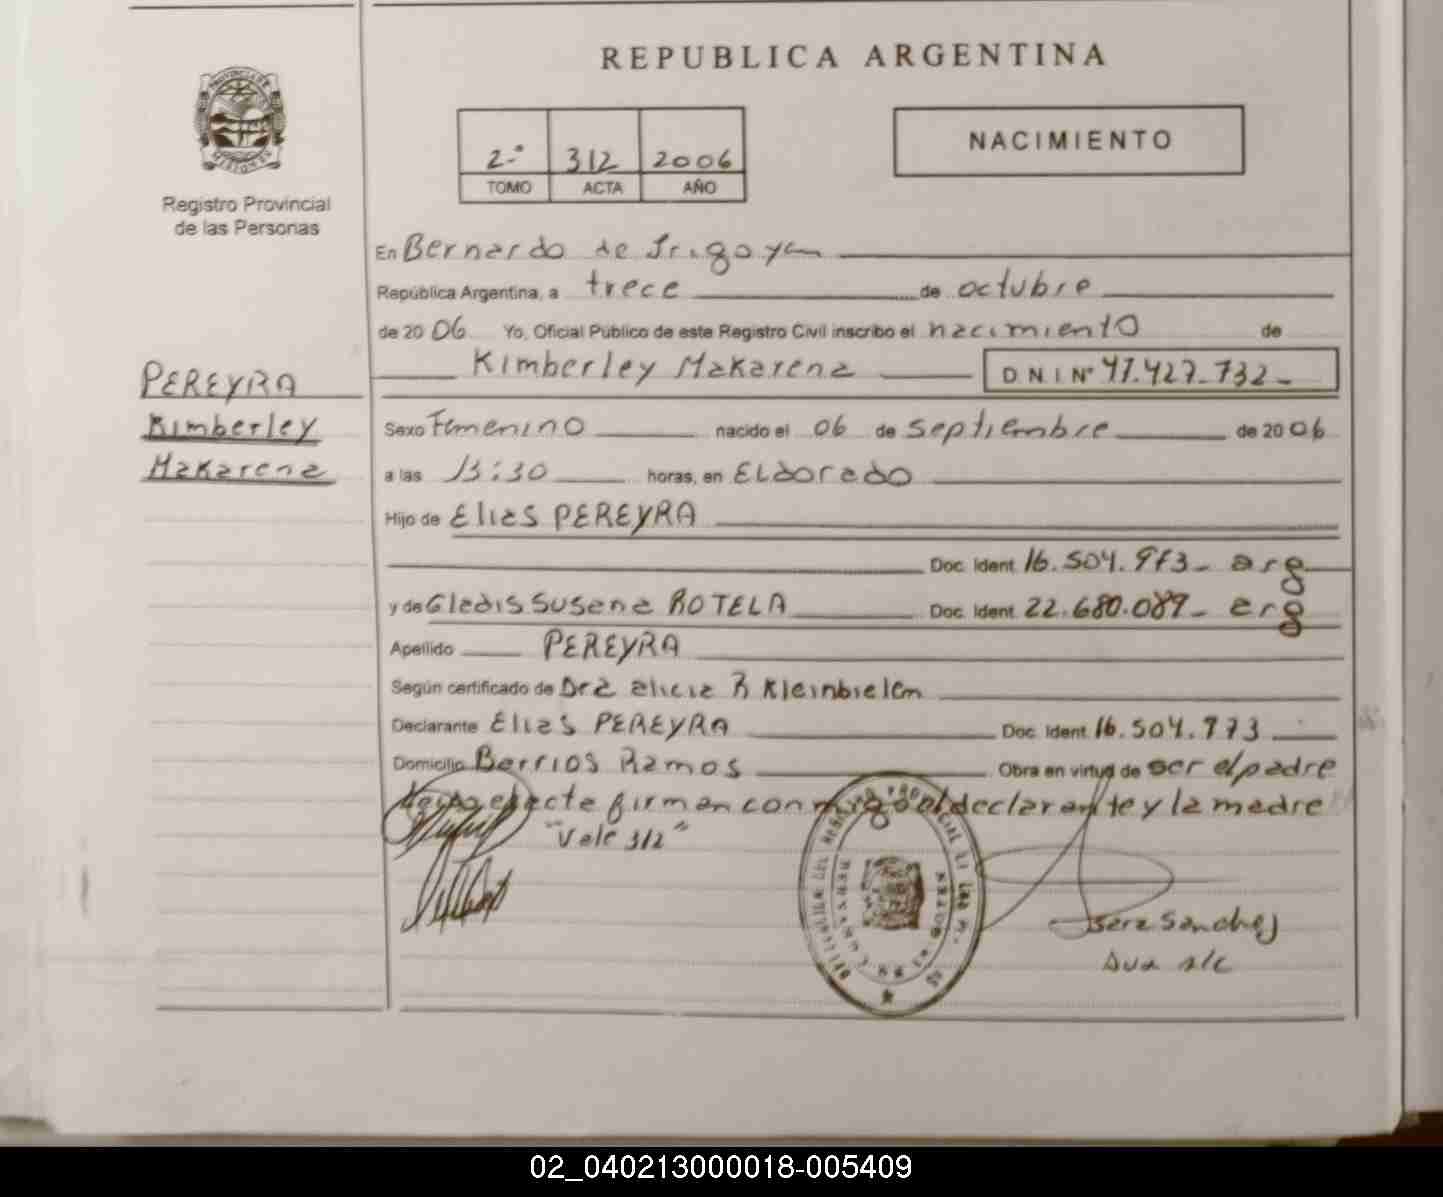 REPUBLICA ARGENTINA
PROVINCIA DE
MISIONES
Registro Provincial
de las Personas
2.° 312 2006
TOMO ACTA AÑO
NACIMIENTO
En Bernardo de Irigoyen
República Argentina, a trece de octubre
de 20 06 Yo, Oficial Público de este Registro Civil inscribo el nacimiento de
Kimberley Makarena D.N.I Nº 47.427.732-
PEREYRA
Kimberley
Makarena
Sexo Femenino nacido el 06 de septiembre de 20 06
a las 13:30 horas, en ELdorado
Hijo de Elias PEREYRA
Doc. Ident. 16.504.973- arg
y de Gladis Susana ROTELA Doc. Ident. 22.680.089- arg
Apellido PEREYRA
Según certificado de Dra alicia R Kleinbielen
Declarante Elias PEREYRA Doc. Ident. 16.504.973
Domicilio Barrios Ramos Obra en virtud de ser el padre
acta firman conmigo el declarante y la madre
"Vale 312"
Sara Sanchez